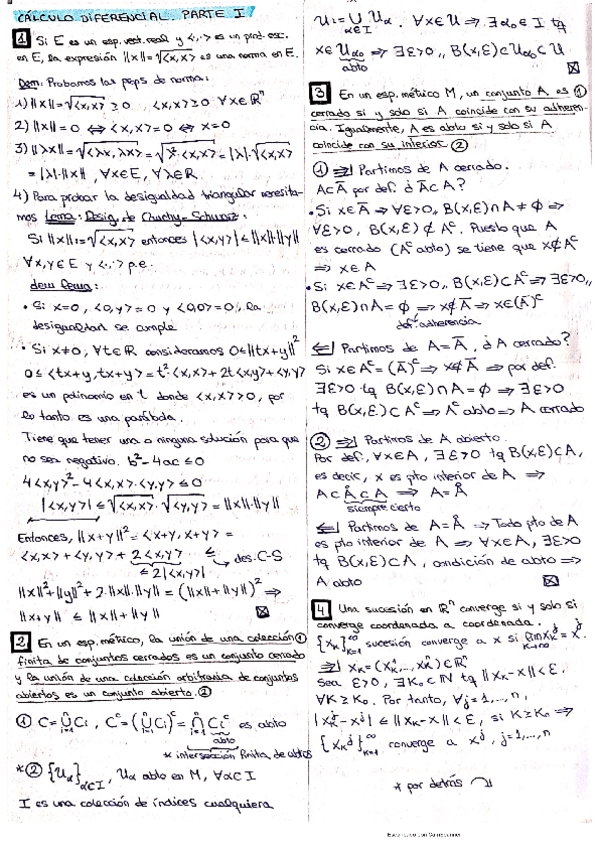 CÁLCULO DIFERENCIAL. PARTE I
1 Si E es un esp. vect. real y <·,·> es un prod. esc.
en E, la expresión ||x||=√<x,x> es una norma en E.
Dem: Probamos las props de norma:
1) ||x||=√<x,x> ≥0 , <x,x>≥0 ∀x∈ℝⁿ
2) ||x||=0 ⇔ <x,x>=0 ⇔ x=0
3) ||λx||=√<λx,λx> = √λ²·<x,x> = |λ|·√<x,x>
= |λ|·||x|| , ∀x∈E, ∀λ∈ℝ
4) Para probar la desigualdad triangular necesita-
mos Lema: Desig. de Cauchy-Schwarz:
Si ||x||:=√<x,x> entonces |<x,y>|≤||x||·||y||
∀x,y∈E y <·,·> p.e.
dem lema:
• Si x=0, <0,y>=0 y <0,0>=0, la
desigualdad se cumple
• Si x≠0, ∀t∈ℝ consideramos 0≤||tx+y||²
0≤<tx+y,tx+y>=t²·<x,x>+2t<x,y>+<y,y>
es un polinomio en t donde <x,x>>0, por
lo tanto es una parábola.
Tiene que tener una o ninguna solución para que
no sea negativo. b²-4ac≤0
4<x,y>²-4<x,x>·<y,y>≤0
|<x,y>|≤√<x,x>·√<y,y>=||x||·||y||
Entonces, ||x+y||²=<x+y,x+y>=
<x,x>+<y,y>+2<x,y> ≤ des. C-S
≤2|<x,y>|
||x||²+||y||²+2·||x||·||y||=(||x||+||y||)² ⇒
||x+y||≤||x||+||y||
2 En un esp. métrico, la unión de una colección ①
finita de conjuntos cerrados es un conjunto cerrado
y la unión de una colección arbitraria de conjuntos
abiertos es un conjunto abierto. ②
① C=⋃ⁿᵢ₌₁Cᵢ , Cᶜ=(⋃ⁿᵢ₌₁Cᵢ)ᶜ=⋂ⁿᵢ₌₁Cᵢᶜ es abto
abto
* intersección finita de abtos
*② {Uα}α∈I, Uα abto en M, ∀α∈I
I es una colección de índices cualquiera
U:=⋃α∈I Uα. ∀x∈U ⇒ ∃α₀∈I tq
x∈Uα₀ ⇒ ∃ε>0,, B(x,ε)⊂Uα₀⊂U
abto
3 En un esp. métrico M, un conjunto A es ①
cerrado si y solo si A coincide con su adheren-
cia. Igualmente, A es abto si y solo si A
coincide con su interior. ②
① ⇒| Partimos de A cerrado.
A⊂Ā por def. ¿Ā⊂A?
• Si x∈Ā ⇒ ∀ε>0,, B(x,ε)∩A≠∅ ⇒
∀ε>0, B(x,ε)⊄Aᶜ. Puesto que A
es cerrado (Aᶜ abto) se tiene que x∉Aᶜ
⇒ x∈A
• Si x∈Aᶜ ⇒ ∃ε>0,, B(x,ε)⊂Aᶜ ⇒ ∃ε>0,,
B(x,ε)∩A=∅ ⇒ x∉Ā ⇒ x∈(Ā)ᶜ
def. adherencia
⇐| Partimos de A=Ā, ¿A cerrado?
Si x∈Aᶜ=(Ā)ᶜ ⇒ x∉Ā ⇒ por def.
∃ε>0 tq B(x,ε)∩A=∅ ⇒ ∃ε>0
tq B(x,ε)⊂Aᶜ ⇒ Aᶜ abto ⇒ A cerrado
② ⇒| Partimos de A abierto.
Por def, ∀x∈A, ∃ε>0 tq B(x,ε)⊂A,
es decir, x es pto interior de A ⇒
A⊂Å⊂A ⇒ A=Å
siempre cierto
⇐| Partimos de A=Å ⇒ Todo pto de A
es pto interior de A ⇒ ∀x∈A, ∃ε>0
tq B(x,ε)⊂A, condición de abto ⇒
A abto
4 Una sucesión en ℝⁿ converge si y solo si
converge coordenada a coordenada.
{xₖ}∞ₖ₌₁ sucesión converge a x si lim k→∞ xₖ=x.
⇒| xₖ=(xₖ¹,...,xₖⁿ)∈ℝⁿ
Sea ε>0, ∃k₀∈ℕ tq ||xₖ-x||<ε,
∀k≥k₀. Por tanto, ∀j=1,...,n,
|xₖʲ-xʲ|≤||xₖ-x||<ε, si k≥k₀ ⇒
{xₖʲ}∞ₖ₌₁ converge a xʲ, j=1,...,n
* por detrás
Escaneado con CamScanner